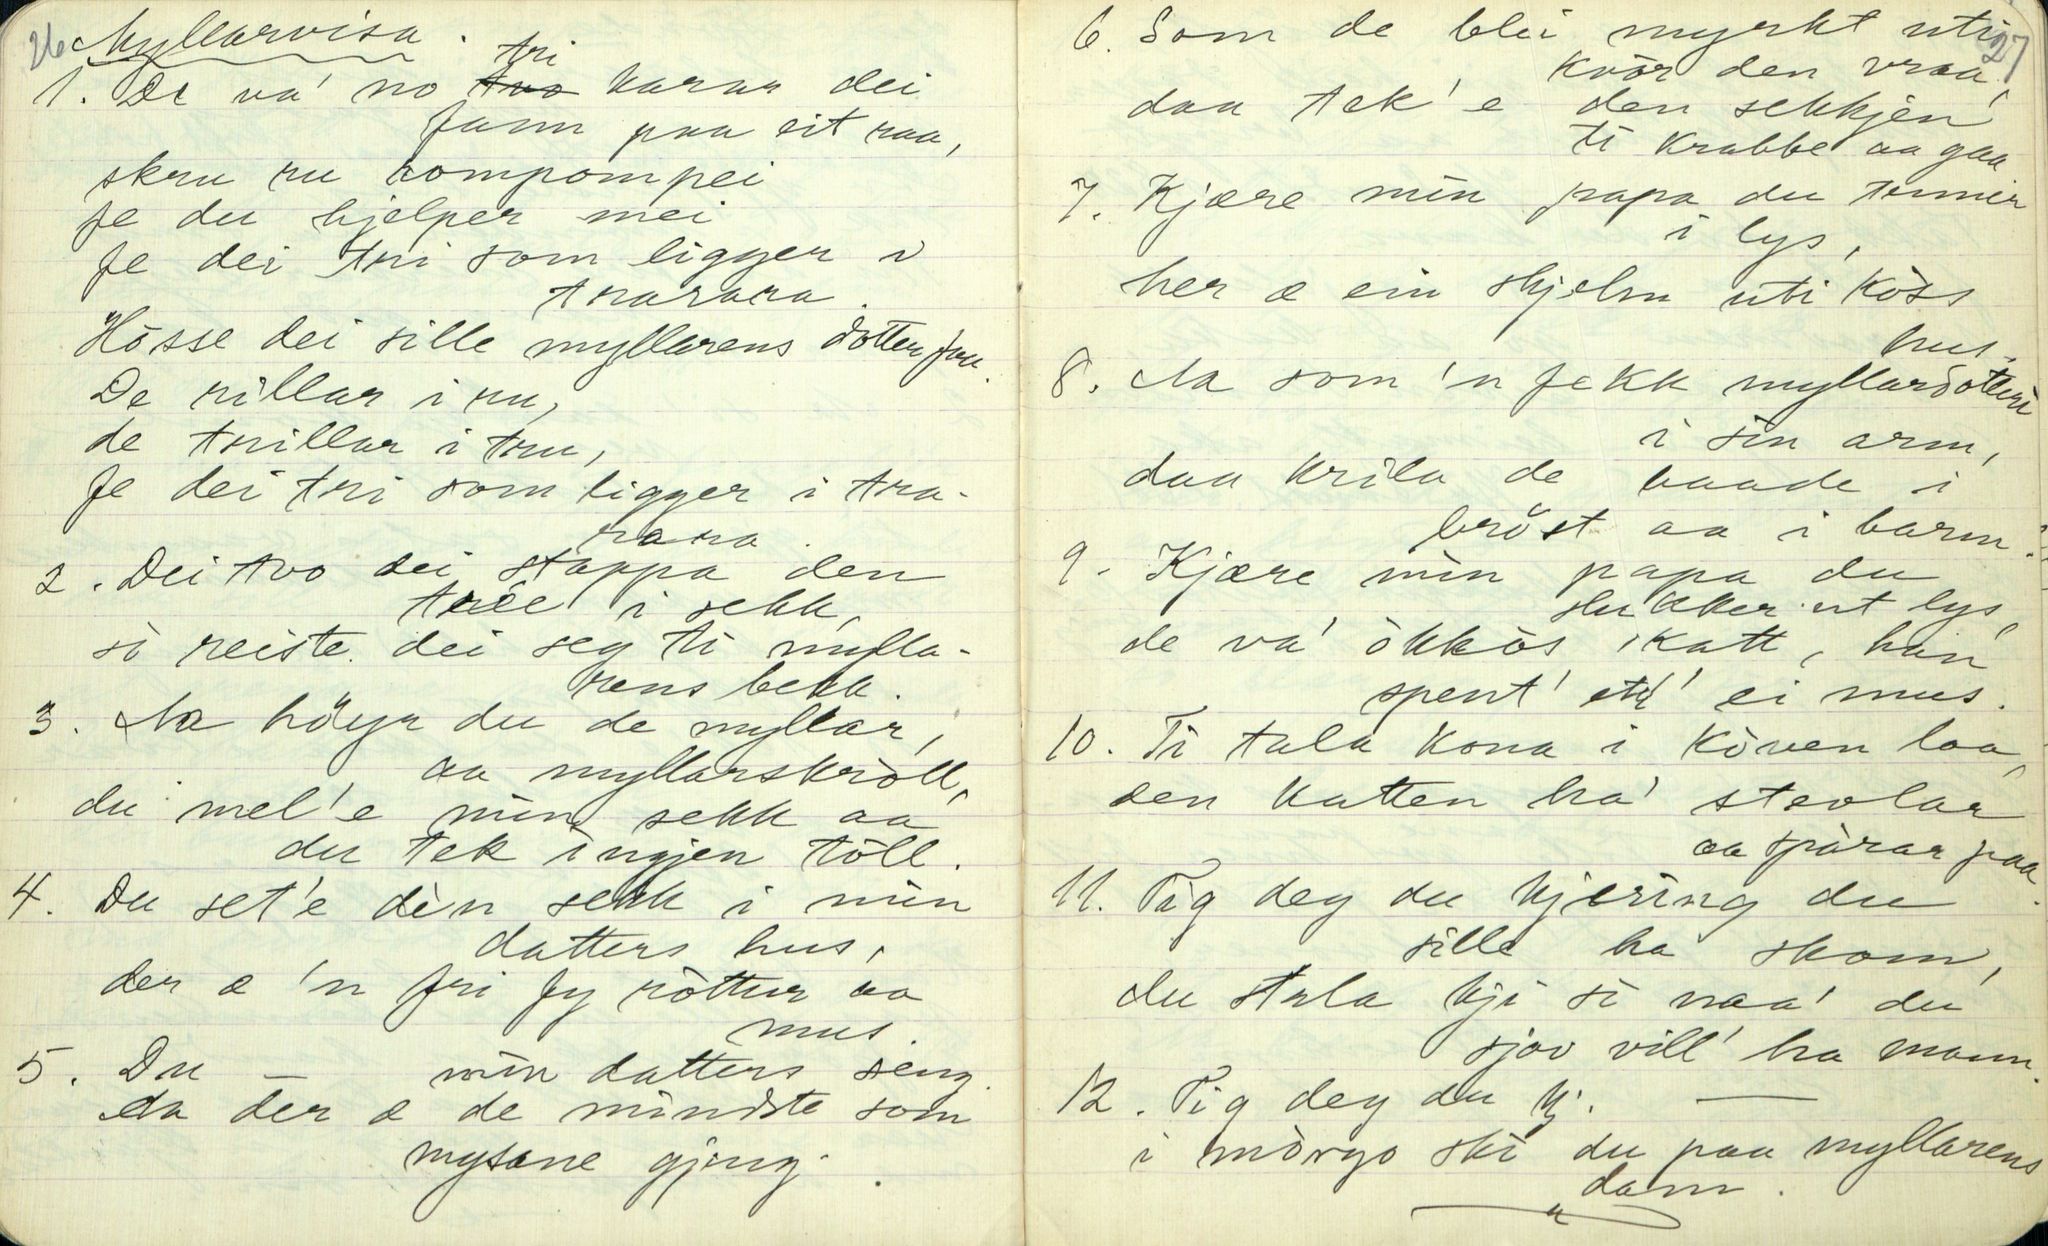 26
Myllarvisa.
tri
1. De va' no two karar dei
fann paa eit raa,
skru ru rompompei
fe du hjelper mei
fe dei tri som ligger i
trarara.
Hòsse dei sille myllarens dotter faa.
De rillar i ru,
de trillar i tru,
fe dei tri som ligger i tra-
rara.
2. Dei tvo dei stappa den
trèe i sekk,
sò reiste dei seg ti mylla-
rens bekk.
3. Aa höyr du de myllar,
aa myllarskròll,
du mel'e min sekk aa
du tek ingjen tòll.
4. Du set'e dèn sekk i min
datters hus,
der æ 'n fri fy ròttur aa
mus.
5. Du — min datters seng
da der æ de mindste som
mysane gjeng.
27
6. Som de blei myrkt uti
kvòr den vraa,
daa tek'e den sekkjen
ti krabbe aa gaa
7. Kjære min papa du tenner
i lys,
her æ ein skjelm uti kòss
hus.
8. Aa som 'n fekk myllardotteri
i sin arm,
daa krila de baade i
bröst aa i barm.
9. Kjære min papa du
slukker ut lys,
de va' òkkòs katt, hàn
spent' ett' ei mus.
10. Ti tala kona i kòven laa,
den katten ha' stevlar
aa spòrar paa.
11. Tig deg du kjering du
sille ha skam,
du tala kji sò naa' du
sjøv vill' ha mann.
12. Tig deg du kj. —
i mòrgo ski du paa myllarens
dam.